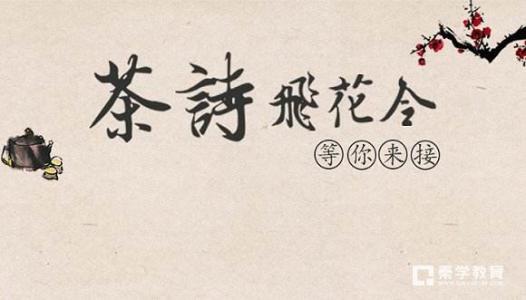 茶詩飛花令
等你来接
秦学教育